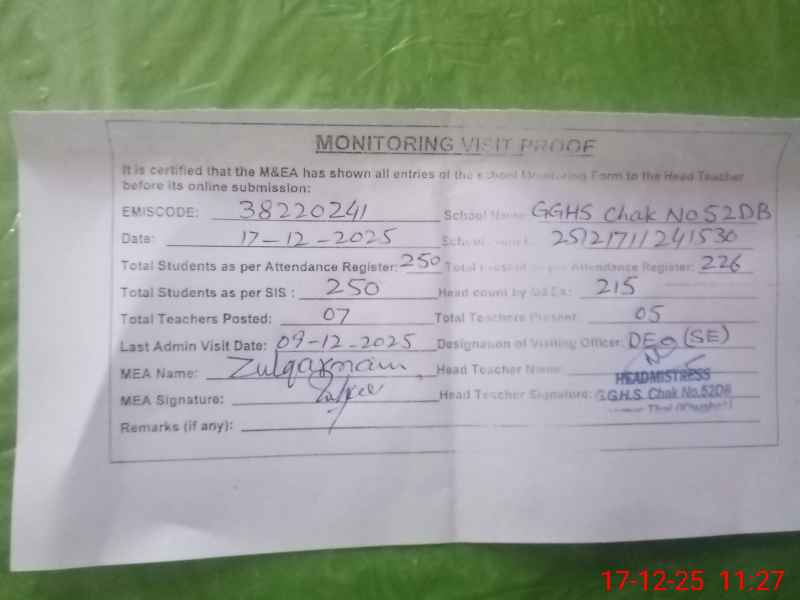 MONITORING VISIT PROOF
It is certified that the M&EA has shown all entries of the school Monitoring Form to the Head Teacher
before its online submission:
EMISCODE: 38220241 School Name GGHS Chak No 52DB
Date: 17-12-2025 School 25121711241530
Total Students as per Attendance Register: 250 Total Present as per Attendance Register: 226
Total Students as per SIS : 250 Head count by M&EA: 215
Total Teachers Posted: 07 Total Teachers Present: 05
Last Admin Visit Date: 09-12-2025 Designation of Visiting Officer: DEO (SE)
MEA Name: Zulqarnain Head Teacher Name:
HEADMISTRESS
MEA Signature: Head Teacher Signature: G.G.H.S. Chak No.52DB
Remarks (if any):
17-12-25 11:27